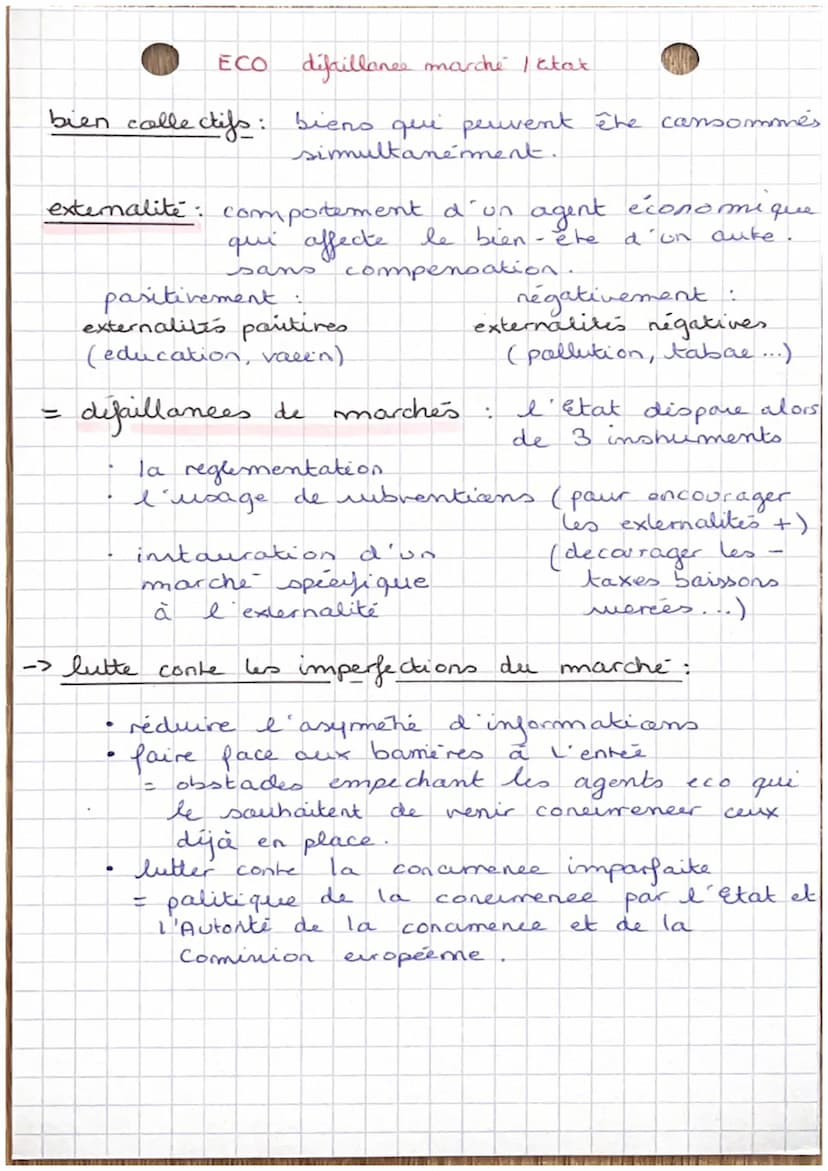 ECO défaillance marché / Etat
bien collectifs : biens qui peuvent être consommés
simultanément.
externalité : comportement d'un agent économique
qui affecte le bien-être d'un autre.
sans compensation.
positivement : négativement :
externalités positives externalités négatives
(education, vaccin) (pollution, tabac ...)
= défaillances de marchés : l'Etat dispose alors
de 3 instruments
· la reglementation
· l'usage de subventions (pour encourager
les externalités +)
· instauration d'un (decourager les -
marché spécifique taxes baissons
à l'externalité sucrées ...)
-> lutte contre les imperfections du marché :
• réduire l'asymétrie d'informations
• faire face aux barrières à l'entrée
= obstacles empechant les agents eco qui
le souhaitent de venir concurrencer ceux
déjà en place.
• lutter contre la concurrence imparfaite
= politique de la concurrence par l'Etat et
l'Autorité de la concurrence et de la
Commission européenne.